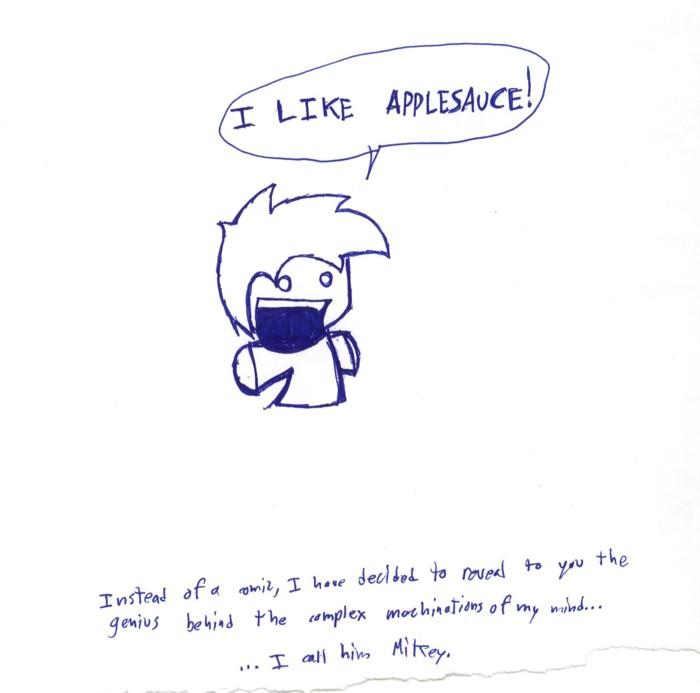 I LIKE APPLESAUCE!
Instead of a comic, I have decided to reveal to you the
genius behind the complex machinations of my mind...
... I call him Mikey.